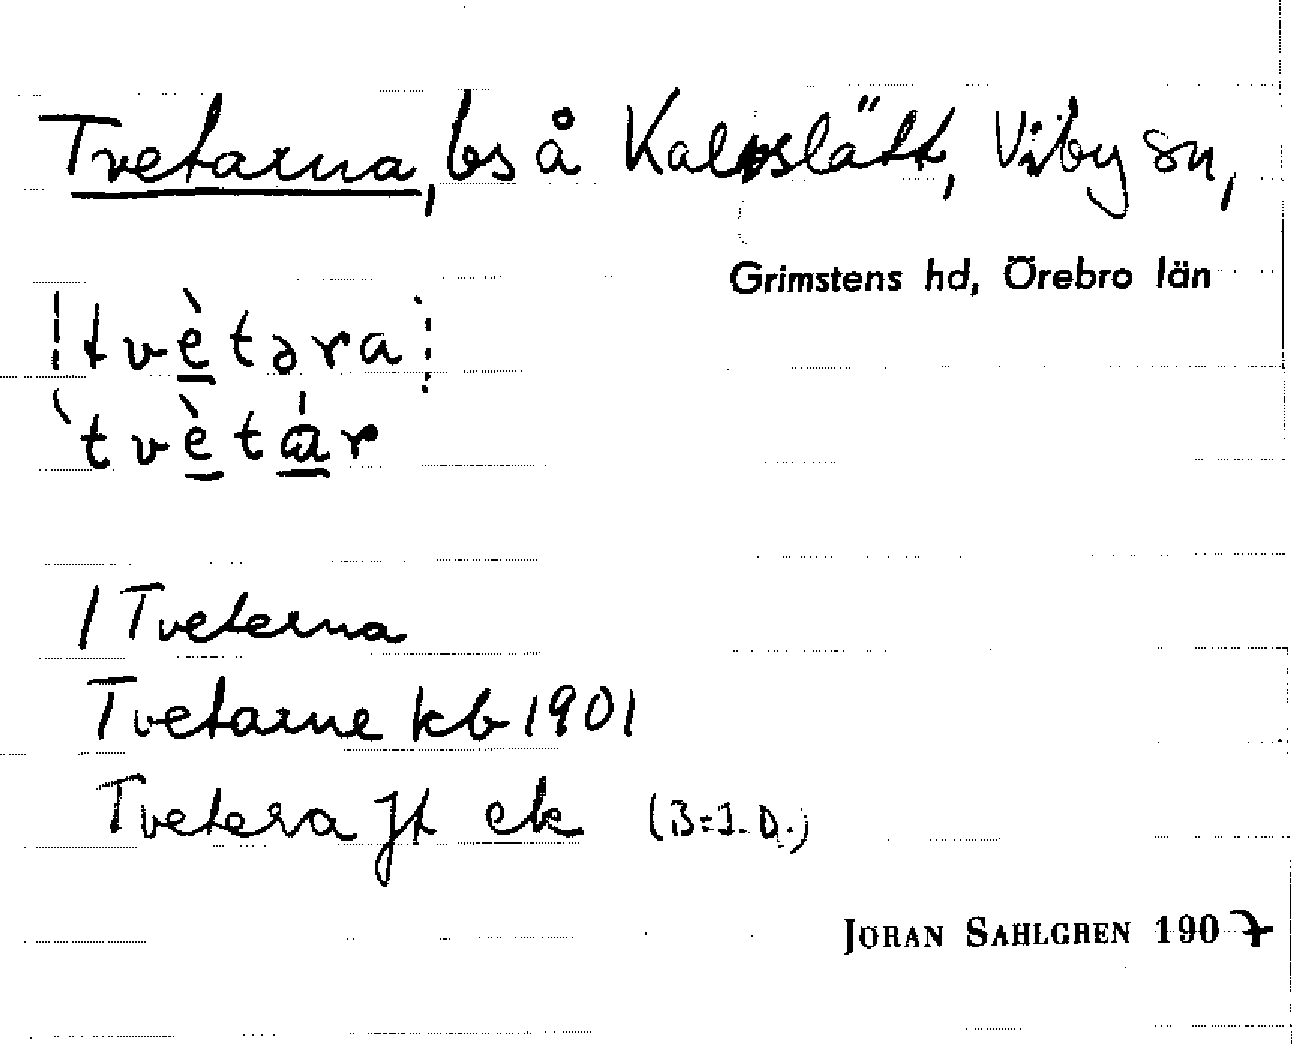 Tvetarna, bs å Kalvslätt, Viby sn,
Grimstens hd, Örebro län
tvètəra
tvètár
/ Tveterna
Tvetarne kb 1901
Tvetera Jt ek (B=J.D.)
JÖRAN SAHLGREN 1907